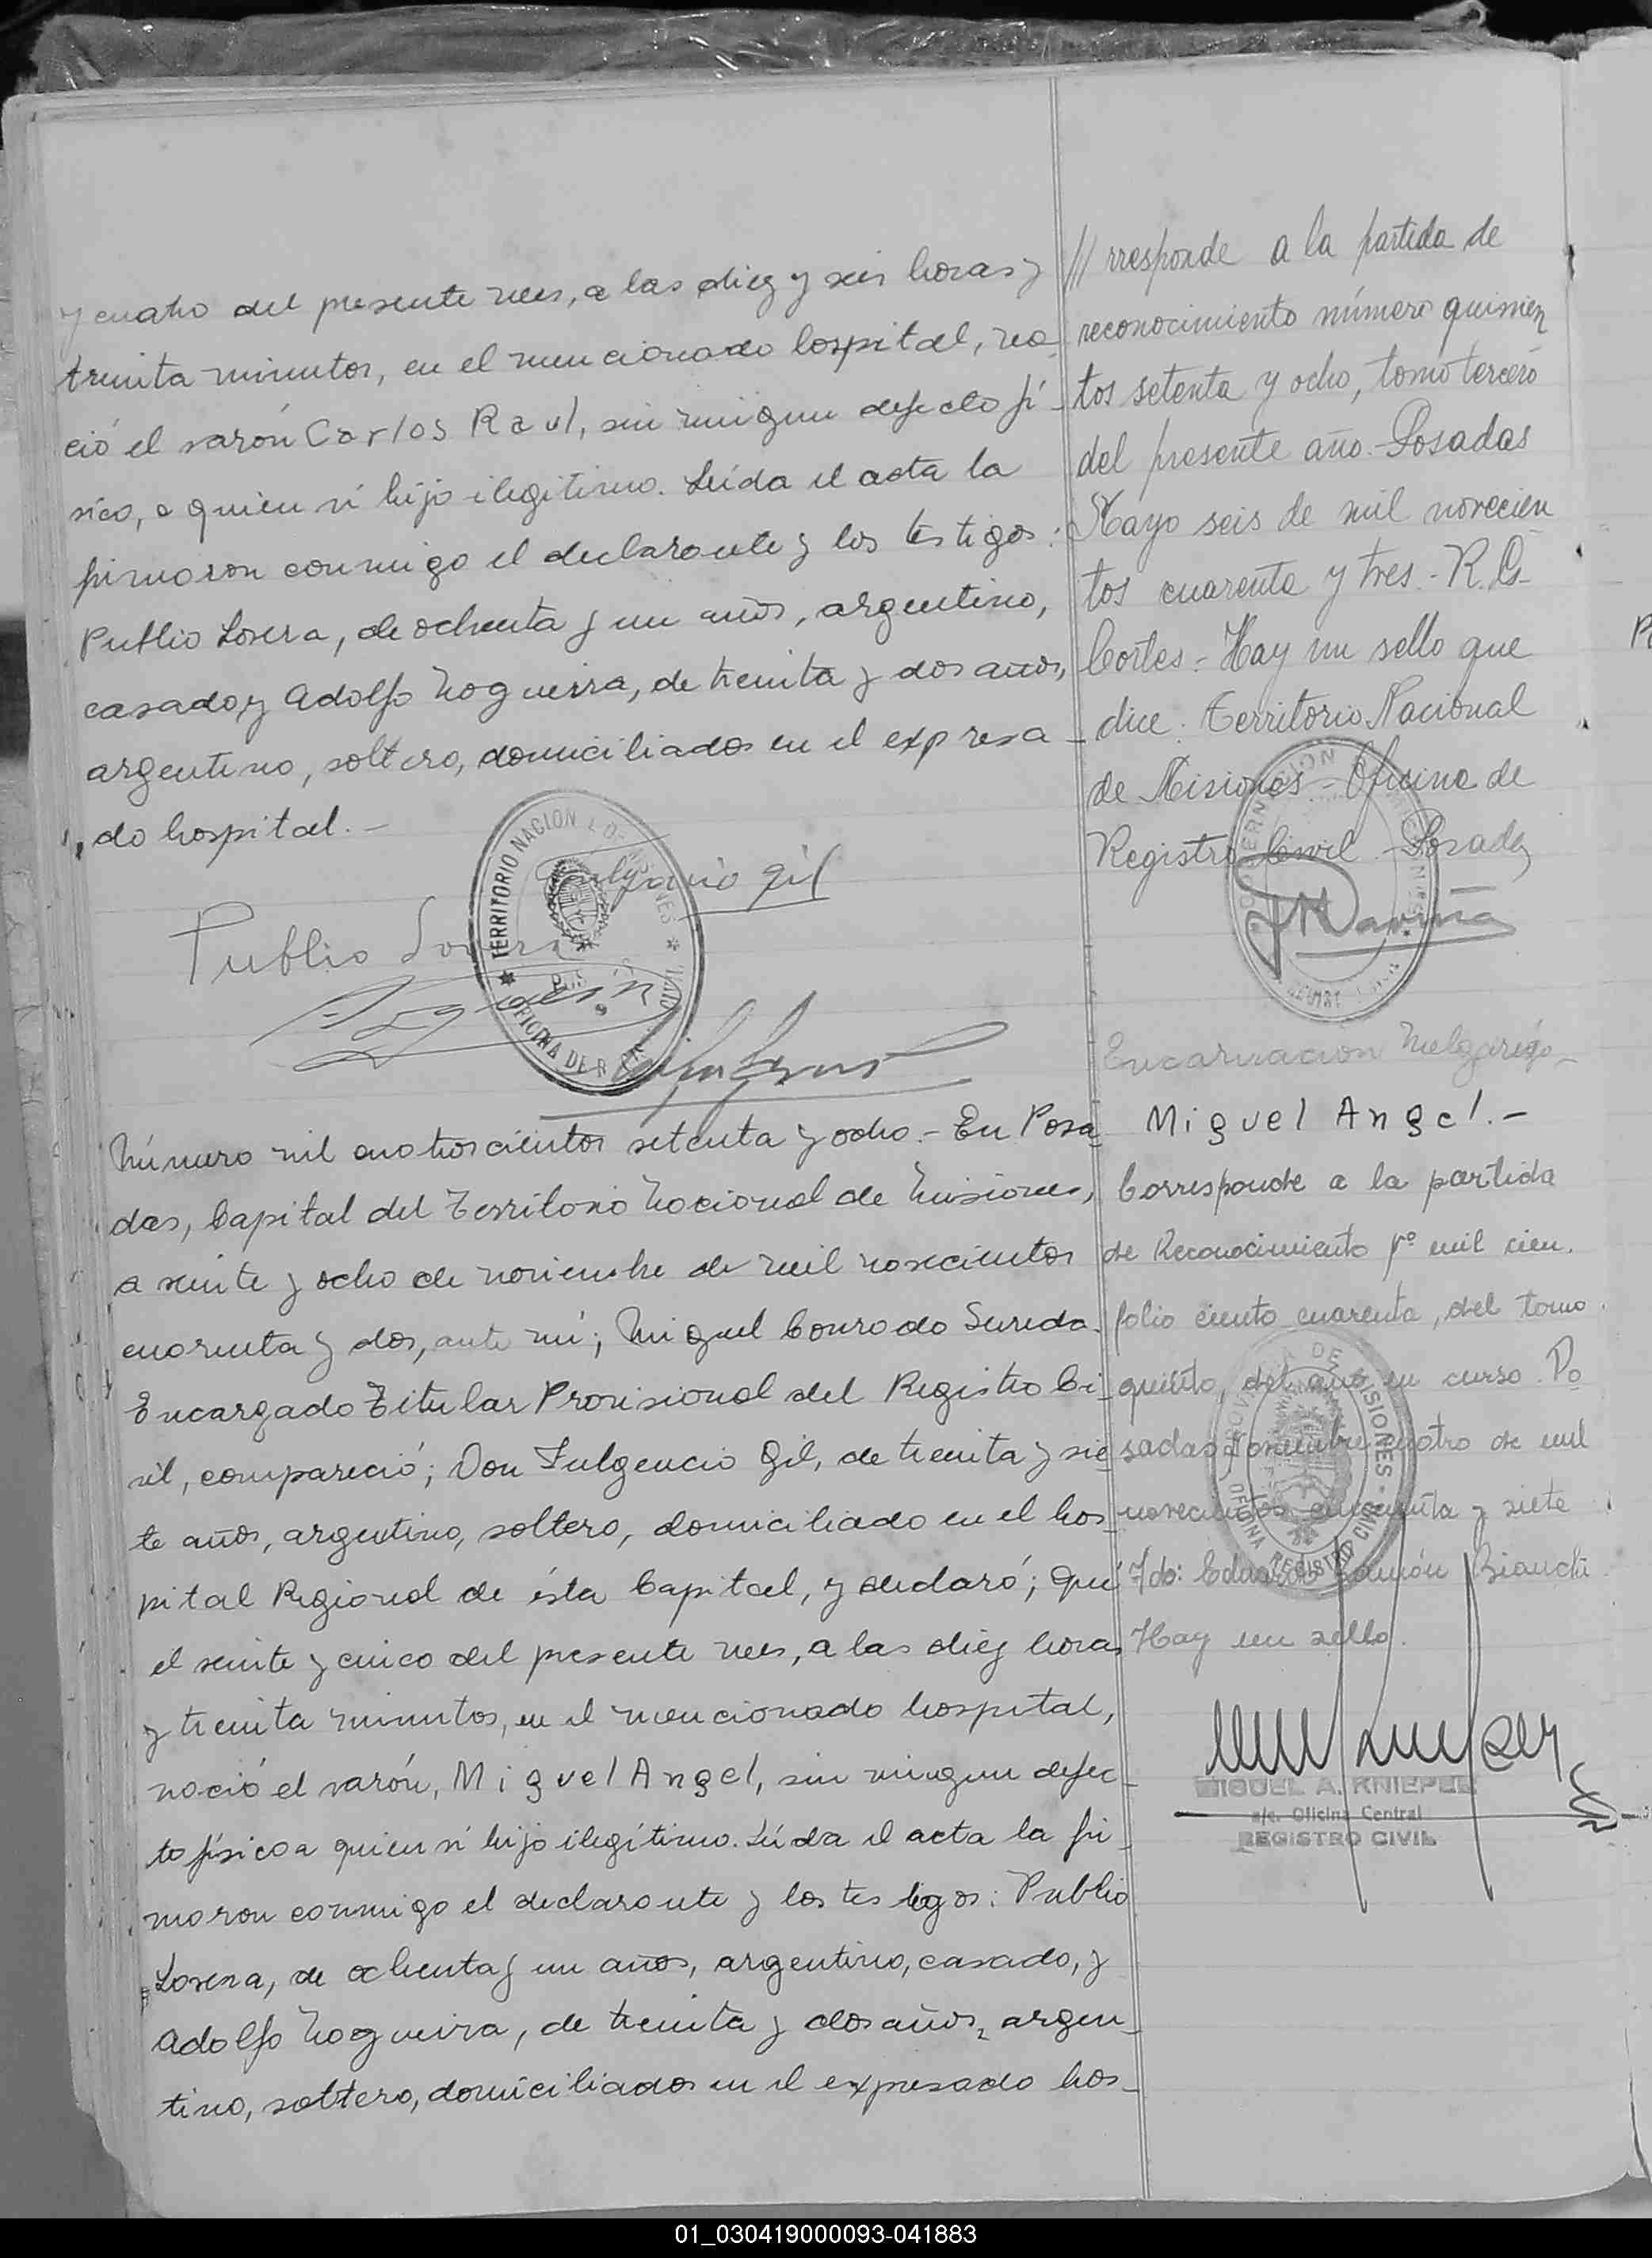 y cuatro del presente mes, a las diez y seis horas y
treinta minutos, en el mencionado hospital, na-
ció el varón Carlos Raul, sin ningun defecto fí-
sico, a quien ví hijo ilegitimo. Leída el acta la
firmaron conmigo el declarante y los testigos:
Publio Lovera, de ochenta y un años, argentino,
casado y Adolfo Nogueira, de treinta y dos años,
argentino, soltero, domiciliados en el expresa-
do hospital.-
Fulgencio Gil
Publio Lovera
TERRITORIO NACIONAL DE MISIONES
OFICINA DE
Número mil cuatrocientos setenta y ocho.- En Posa-
das, Capital del Territorio Nacional de Misiones,
a veinte y ocho de noviembre de mil novecientos
cuarenta y dos, ante mí; Miguel Conrado Sureda.
Encargado Titular Provisional del Registro Ci-
vil, compareció; Don Fulgencio Gil, de treinta y sie-
te años, argentino, soltero, domiciliado en el hos-
pital Regional de ésta Capital, y declaró; Que
el veinte y cinco del presente mes, a las diez horas
y treinta minutos, en el mencionado hospital,
nació el varón, Miguel Angel, sin ningun defec-
to físico a quien ví hijo ilegítimo. Leída el acta la fir-
maron conmigo el declarante y los testigos: Publio
Lovera, de ochenta y un años, argentino, casado, y
Adolfo Nogueira, de treinta y dos años, argen-
tino, soltero, domiciliados en el expresado hos-
/// rresponde a la partida de
reconocimiento número quinien
tos setenta y ocho, tomo tercero
del presente año.- Posadas
Mayo seis de mil novecien
tos cuarenta y tres.- R. G.
Cortes.- Hay un sello que
dice: Territorio Nacional
de Misiones - Oficina de
Registro Civil - Posadas
Encarnacion Melgarejo-
Miguel Angel.-
Corresponde a la partida
de Reconocimiento nº mil cien.
folio ciento cuarenta, del tomo
quinto, del año en curso. Po
sadas Noviembre cuatro de mil
novecientos cincuenta y siete
Fdo: Eduardo Ramón Bianchi
Hay un sello.
PROVINCIA DE MISIONES
OFICINA REGISTRO CIVIL
MIGUEL A. KNIEPER
a/c. Oficina Central
REGISTRO CIVIL
01_030419000093-041883